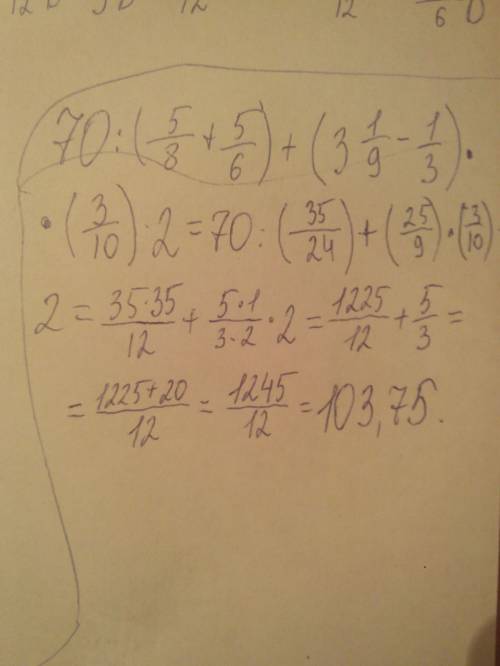 12 12 6
70:(5/8+5/6)+(3 1/9-1/3)·
·(3/10)·2=70:(35/24)+(25/9)·(3/10)
2=35·35/12+5·1/3·2·2=1225/12+5/3=
=1225+20/12=1245/12=103,75.